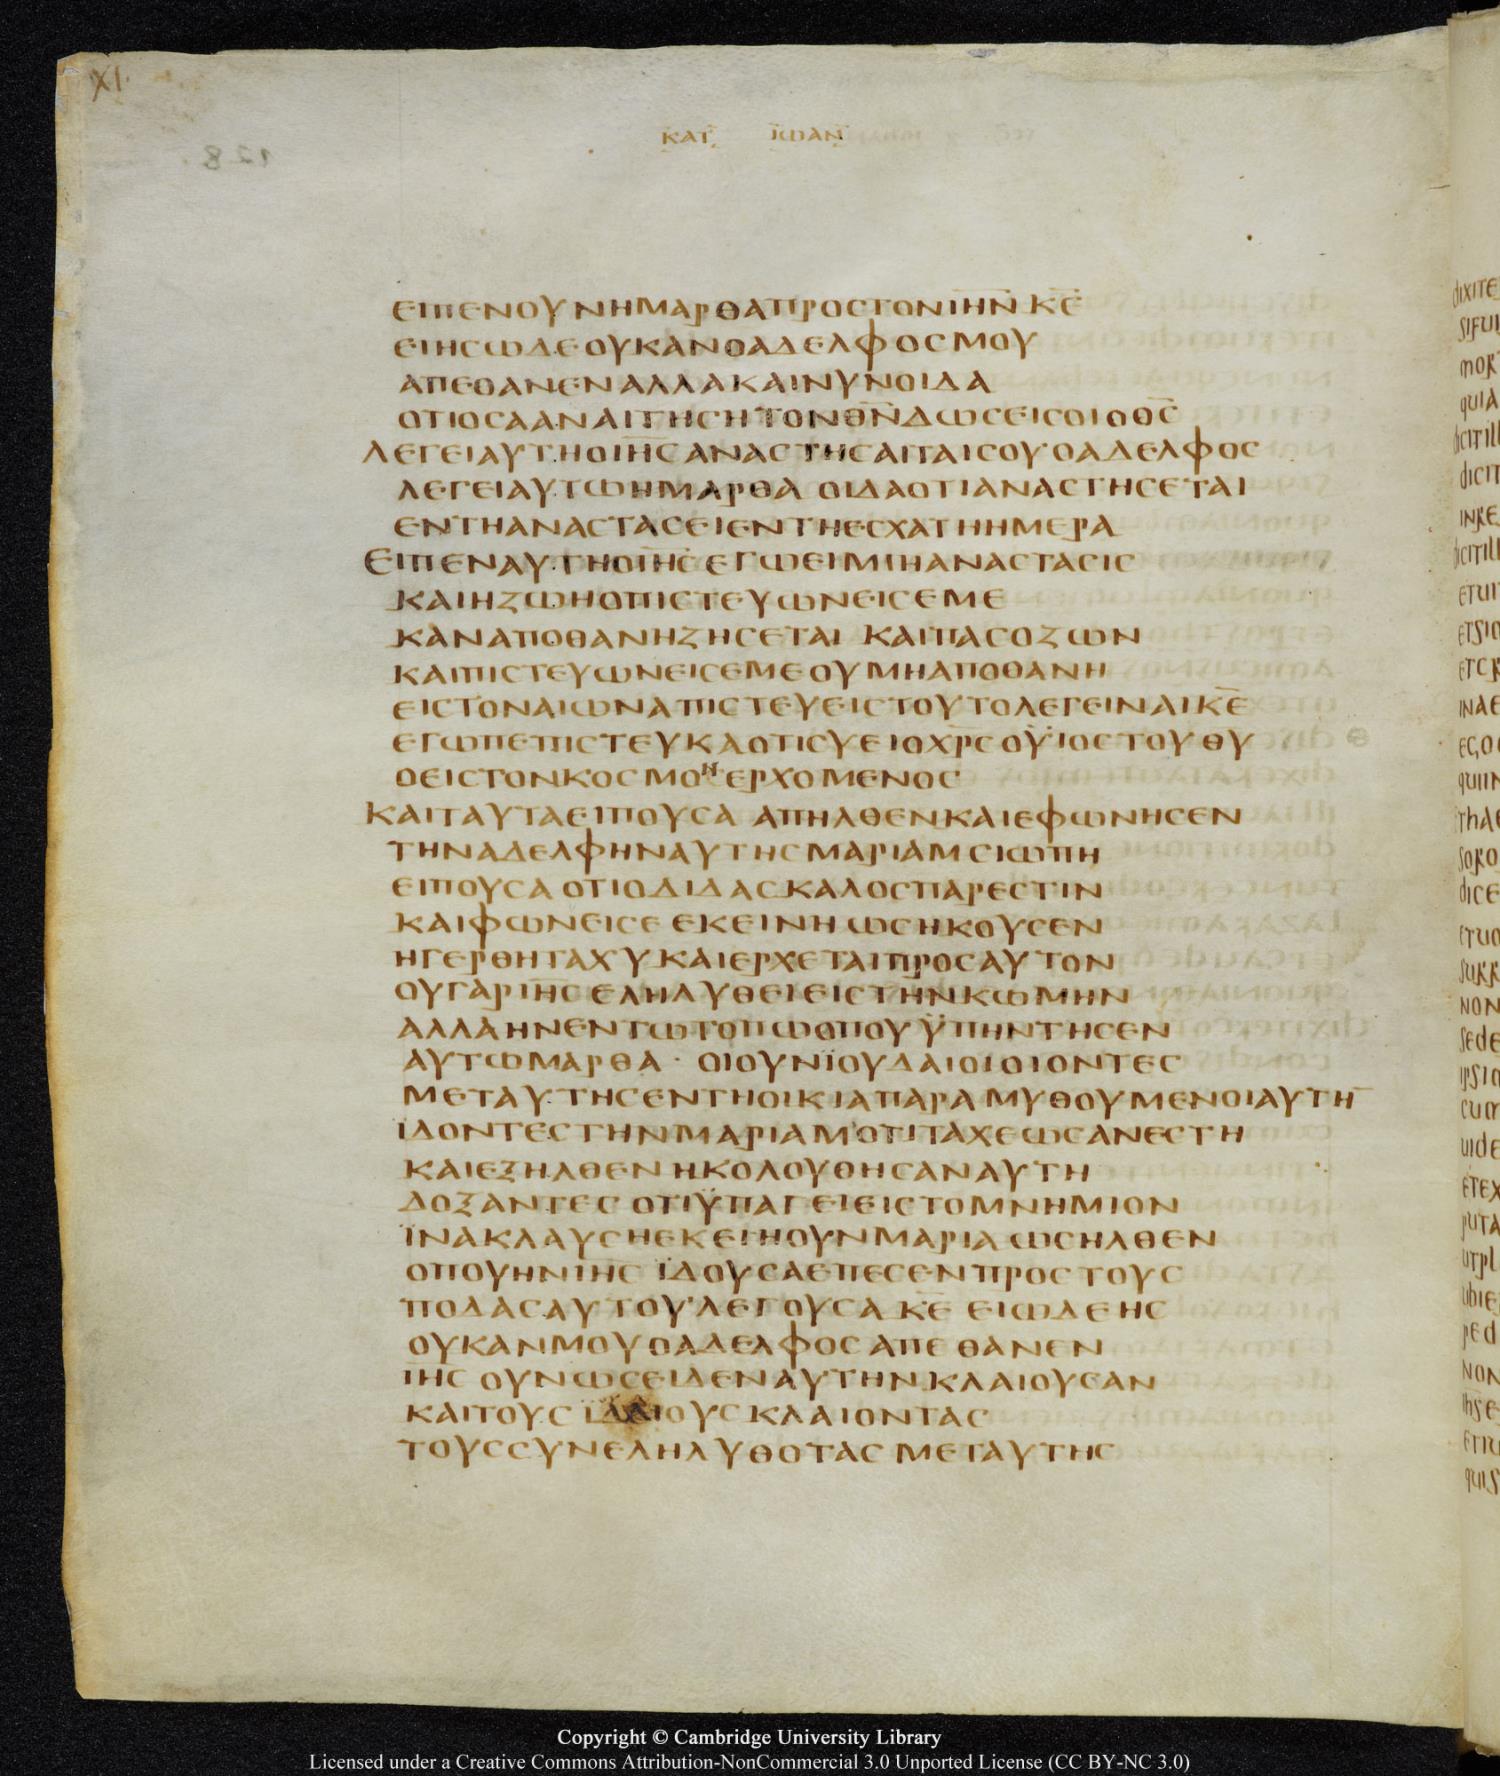 XI
128
ΚΑΤ ΙΩΑΝ
ΕΙΠΕΝΟΥΝΗΜΑΡΘΑΠΡΟΣΤΟΝΙΗΝ ΚΕ
ΕΙΗΣΩΔΕΟΥΚΑΝΟΑΔΕΛΦΟΣΜΟΥ
ΑΠΕΘΑΝΕΝΑΛΛΑΚΑΙΝΥΝΟΙΔΑ
ΟΤΙΟΣΑΑΝΑΙΤΗΣΗΤΟΝΘΝΔΩΣΕΙΣΟΙΟΘΣ
ΛΕΓΕΙΑΥΤΗΟΙΗΣΑΝΑΣΤΗΣΑΙΤΑΙΣΟΥΟΑΔΕΛΦΟΣ
ΛΕΓΕΙΑΥΤΩΗΜΑΡΘΑ ΟΙΔΑΟΤΙΑΝΑΣΤΗΣΕΤΑΙ
ΕΝΤΗΑΝΑΣΤΑΣΕΙΕΝΤΗΕΣΧΑΤΗΗΜΕΡΑ
ΕΙΠΕΝΑΥΤΗΟΙΗΣΕΓΩΕΙΜΙΗΑΝΑΣΤΑΣΙΣ
ΚΑΙΗΖΩΗΟΠΙΣΤΕΥΩΝΕΙΣΕΜΕ
ΚΑΝΑΠΟΘΑΝΗΖΗΣΕΤΑΙ ΚΑΙΠΑΣΟΖΩΝ
ΚΑΙΠΙΣΤΕΥΩΝΕΙΣΕΜΕΟΥΜΗΑΠΟΘΑΝΗ
ΕΙΣΤΟΝΑΙΩΝΑΠΙΣΤΕΥΕΙΣΤΟΥΤΟΛΕΓΕΙΝΑΙΚΕ
ΕΓΩΠΕΠΙΣΤΕΥΚΑΟΤΙΣΥΕΙΟΧΡΣΟΥΪΟΣΤΟΥΘΥ
ΟΕΙΣΤΟΝΚΟΣΜΟΝΕΡΧΟΜΕΝΟΣ
ΚΑΙΤΑΥΤΑΕΙΠΟΥΣΑ ΑΠΗΛΘΕΝΚΑΙΕΦΩΝΗΣΕΝ
ΤΗΝΑΔΕΛΦΗΝΑΥΤΗΣΜΑΡΙΑΜΣΙΩΠΗ
ΕΙΠΟΥΣΑ ΟΤΙΟΔΙΔΑΣΚΑΛΟΣΠΑΡΕΣΤΙΝ
ΚΑΙΦΩΝΕΙΣΕ ΕΚΕΙΝΗ ΩΣΗΚΟΥΣΕΝ
ΗΓΕΡΘΗΤΑΧΥΚΑΙΕΡΧΕΤΑΙΠΡΟΣΑΥΤΟΝ
ΟΥΓΑΡΙΗΣΕΛΗΛΥΘΕΙΕΙΣΤΗΝΚΩΜΗΝ
ΑΛΛΑΗΝΕΝΤΩΤΟΠΩΟΠΟΥΫΠΗΝΤΗΣΕΝ
ΑΥΤΩΜΑΡΘΑ · ΟΙΟΥΝΪΟΥΔΑΙΟΙΟΙΟΝΤΕΣ
ΜΕΤΑΥΤΗΣΕΝΤΗΟΙΚΙΑΠΑΡΑΜΥΘΟΥΜΕΝΟΙΑΥΤΗ
ΪΔΟΝΤΕΣΤΗΝΜΑΡΙΑΜΟΤΙΤΑΧΕΩΣΑΝΕΣΤΗ
ΚΑΙΕΞΗΛΘΕΝΗΚΟΛΟΥΘΗΣΑΝΑΥΤΗ
ΔΟΞΑΝΤΕΣ ΟΤΙΫΠΑΓΕΙΕΙΣΤΟΜΝΗΜΙΟΝ
ΪΝΑΚΛΑΥΣΗΕΚΕΙΗΟΥΝΜΑΡΙΑ ΩΣΗΛΘΕΝ
ΟΠΟΥΗΝΙΗΣ ΪΔΟΥΣΑΕΠΕΣΕΝΠΡΟΣΤΟΥΣ
ΠΟΔΑΣΑΥΤΟΥΛΕΓΟΥΣΑ ΚΕ ΕΙΩΔΕΗΣ
ΟΥΚΑΝΜΟΥΟΑΔΕΛΦΟΣ ΑΠΕΘΑΝΕΝ
ΙΗΣ ΟΥΝΩΣΕΙΔΕΝΑΥΤΗΝΚΛΑΙΟΥΣΑΝ
ΚΑΙΤΟΥΣ ΙΟΥΣΚΛΑΙΟΝΤΑΣ
ΤΟΥΣΣΥΝΕΛΗΛΥΘΟΤΑΣ ΜΕΤΑΥΤΗΣ
Copyright © Cambridge University Library
Licensed under a Creative Commons Attribution-NonCommercial 3.0 Unported License (CC BY-NC 3.0)